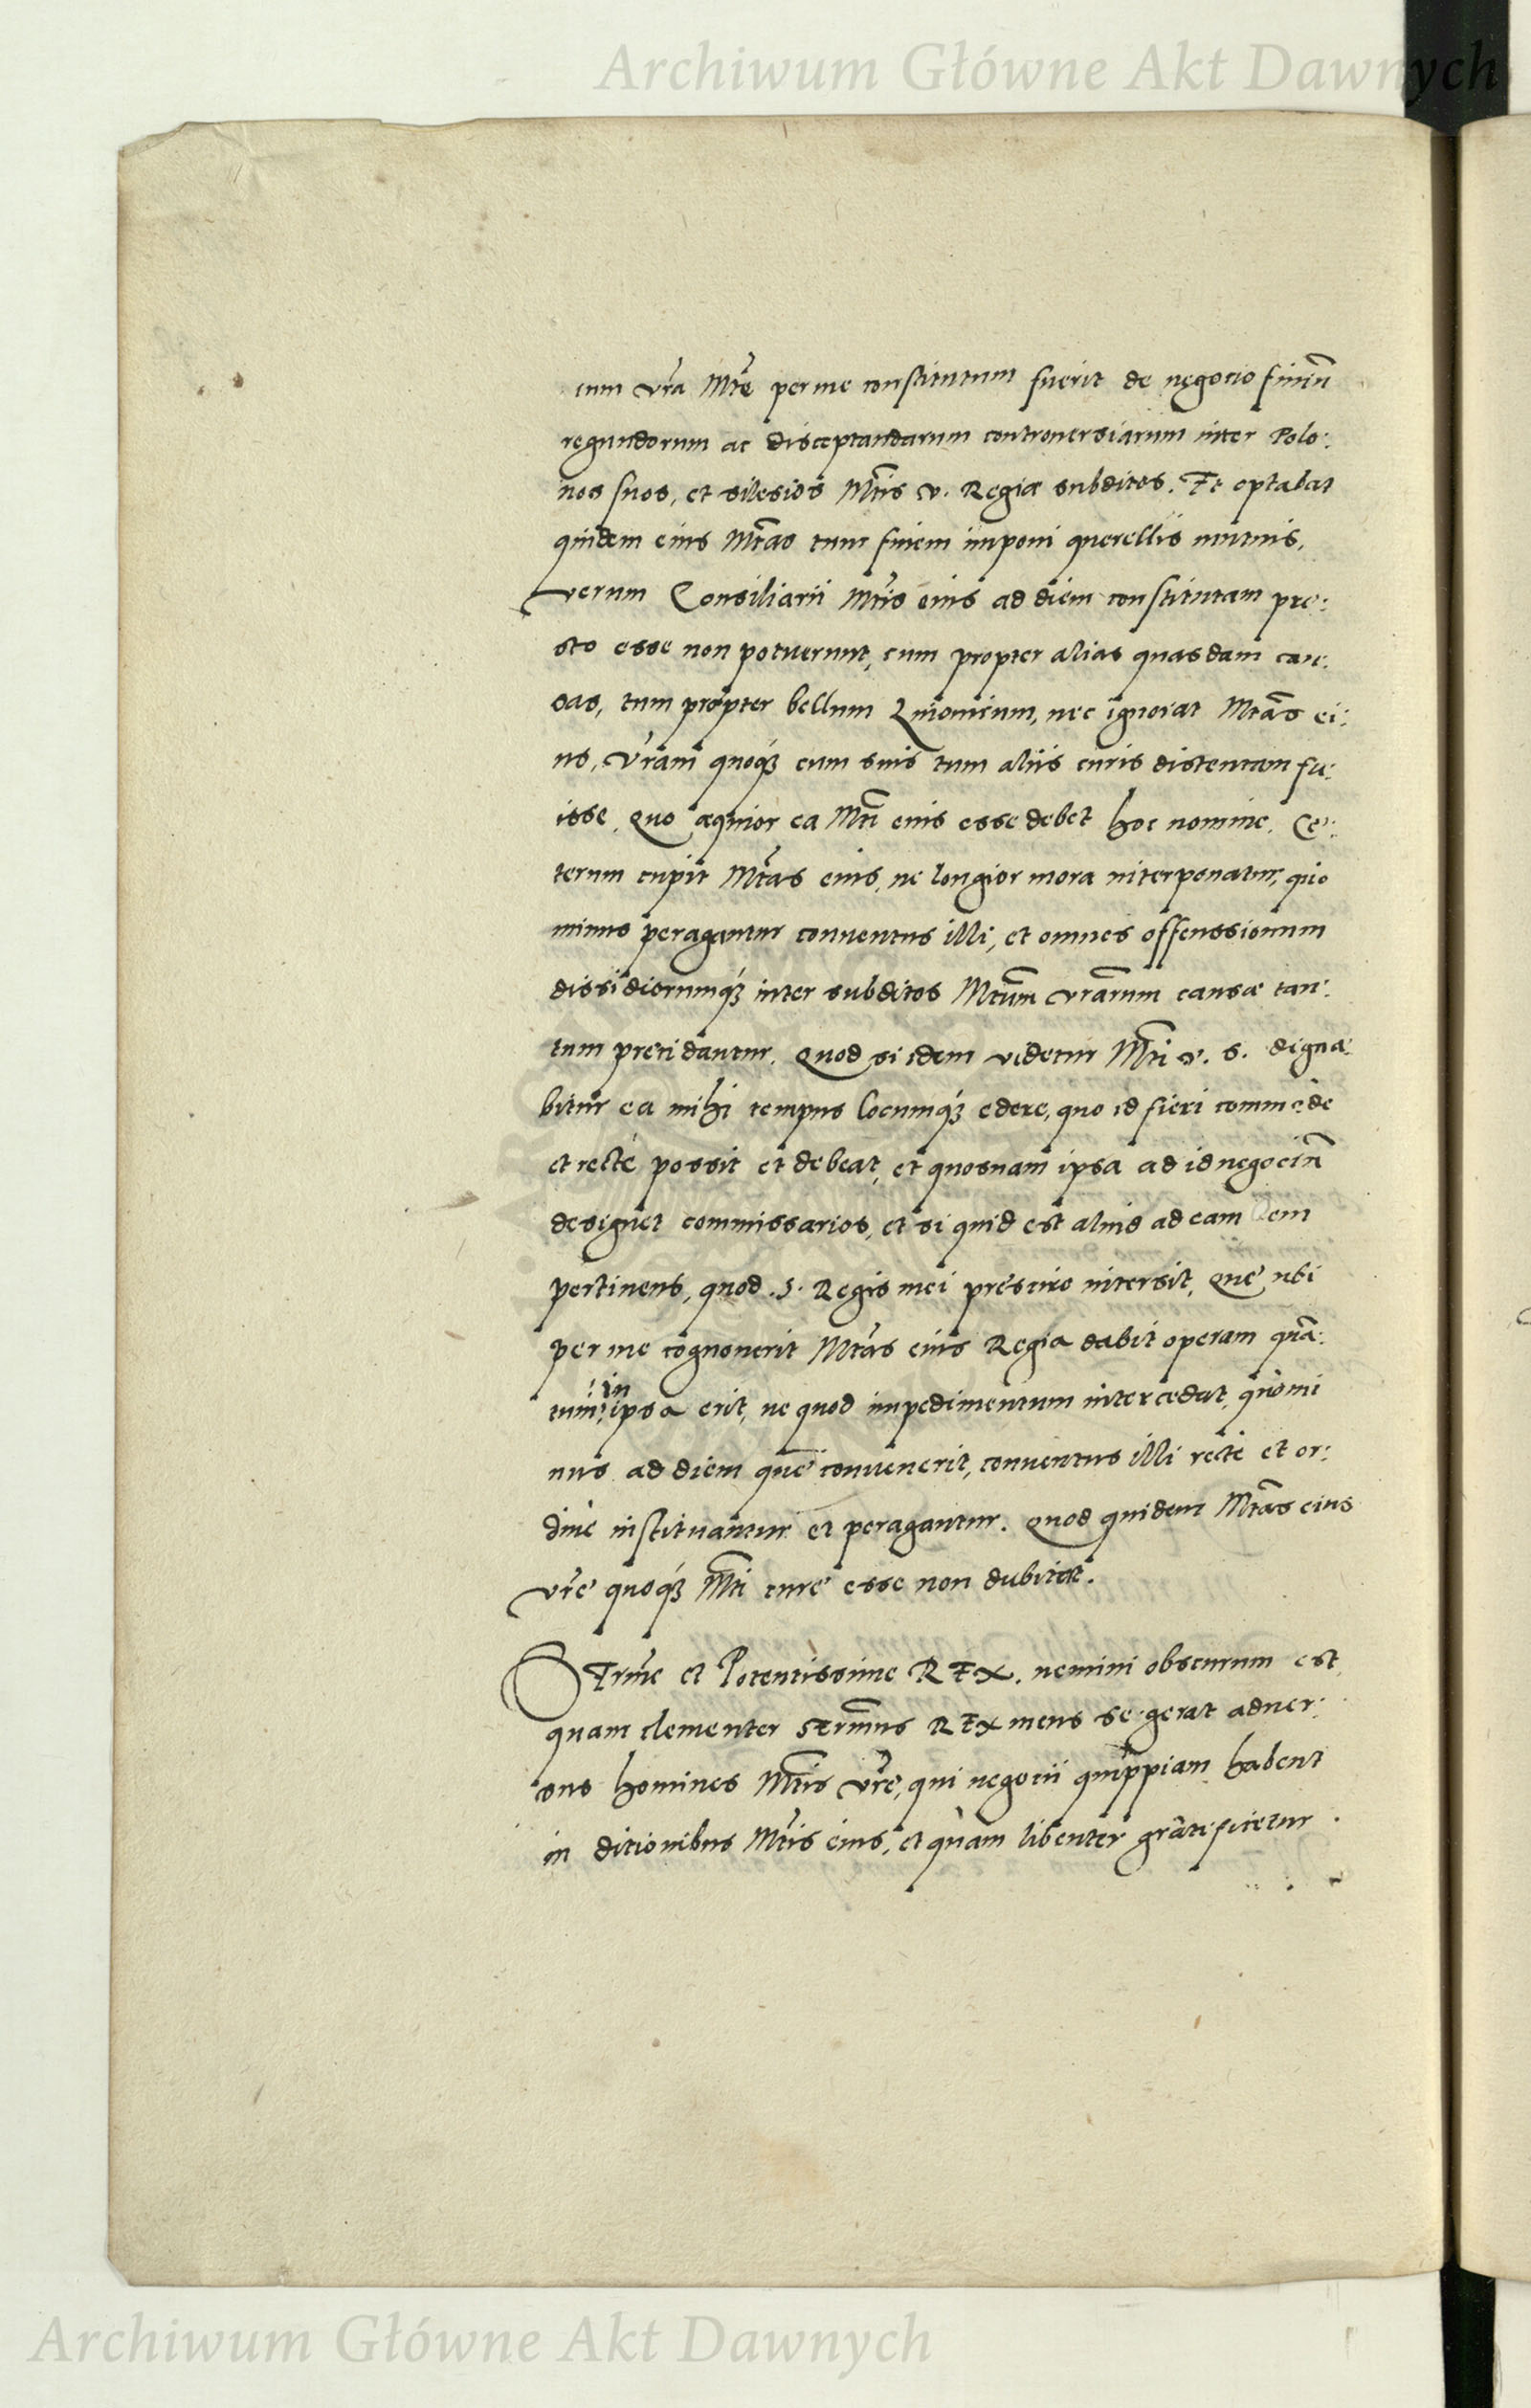 Archiwum Główne Akt Dawnych
cum vr̃a Mt̃e per me constitutum fuerit de negocio finiũ
regundorum ac disceptandarum controuersiarum inter Polo:
nos suos, et silesios Mt̃is v. Regiæ subditos. Et optabat
quidem eius Mt̃as tum finem imponi querellis mutuis,
verum Consiliarii Mt̃is eius ad diem constitutam pre:
sto esse non potuerunt, cum propter alias quasdam cau:
sas, tum propter bellum Liuonicum, nec ignorat Mt̃as ei:
us, Vr̃am quoq́ꝫ cum suis tum aliis curis distentam fu:
isse, Quo æquior ea Mt̃i eius esse debet hoc nomine. Ce:
terum cupit Mt̃as eius, ne longior mora interponatur, quo
minus peragantur conuentus illi, et omnes offenssionum
dissidiorumq́ꝫ inter subditos Mt̃um vr̃arum causæ tan:
tum precidantur. Quod si idem videtur Mt̃i v. s. digna:
bitur ea mihi tempus locumq́ꝫ edere, quo id fieri commode
et recte possit et debeat, et quosnam ipsa ad id negociũ
designet commissarios, et si quid est aliud ad eam rem
pertinens, quod .S. Regis mei prescire intersit, Que ubi
per me cognouerit Mt̃as eius Regia dabit operam quã:
in
tum ipsa erit, ne quod impedimentum intercedat, quomi
nus ad diem que conuenerit, conuentus illi recte et or:
dine instituantur et peragantur. Quod quidem Mt̃as eius
vr̃e quoq́ꝫ Mt̃i cure esse non dubitat.
SErm̃e et Potentissime REX. nemini obscurum est
quam clementer serm̃us REX meus se gerat aduer:
sus homines Mt̃is vr̃e, qui negocii quippiam habent
in ditionibus Mt̃is eius, et quam libenter gratificetur
Archiwum Główne Akt Dawnych